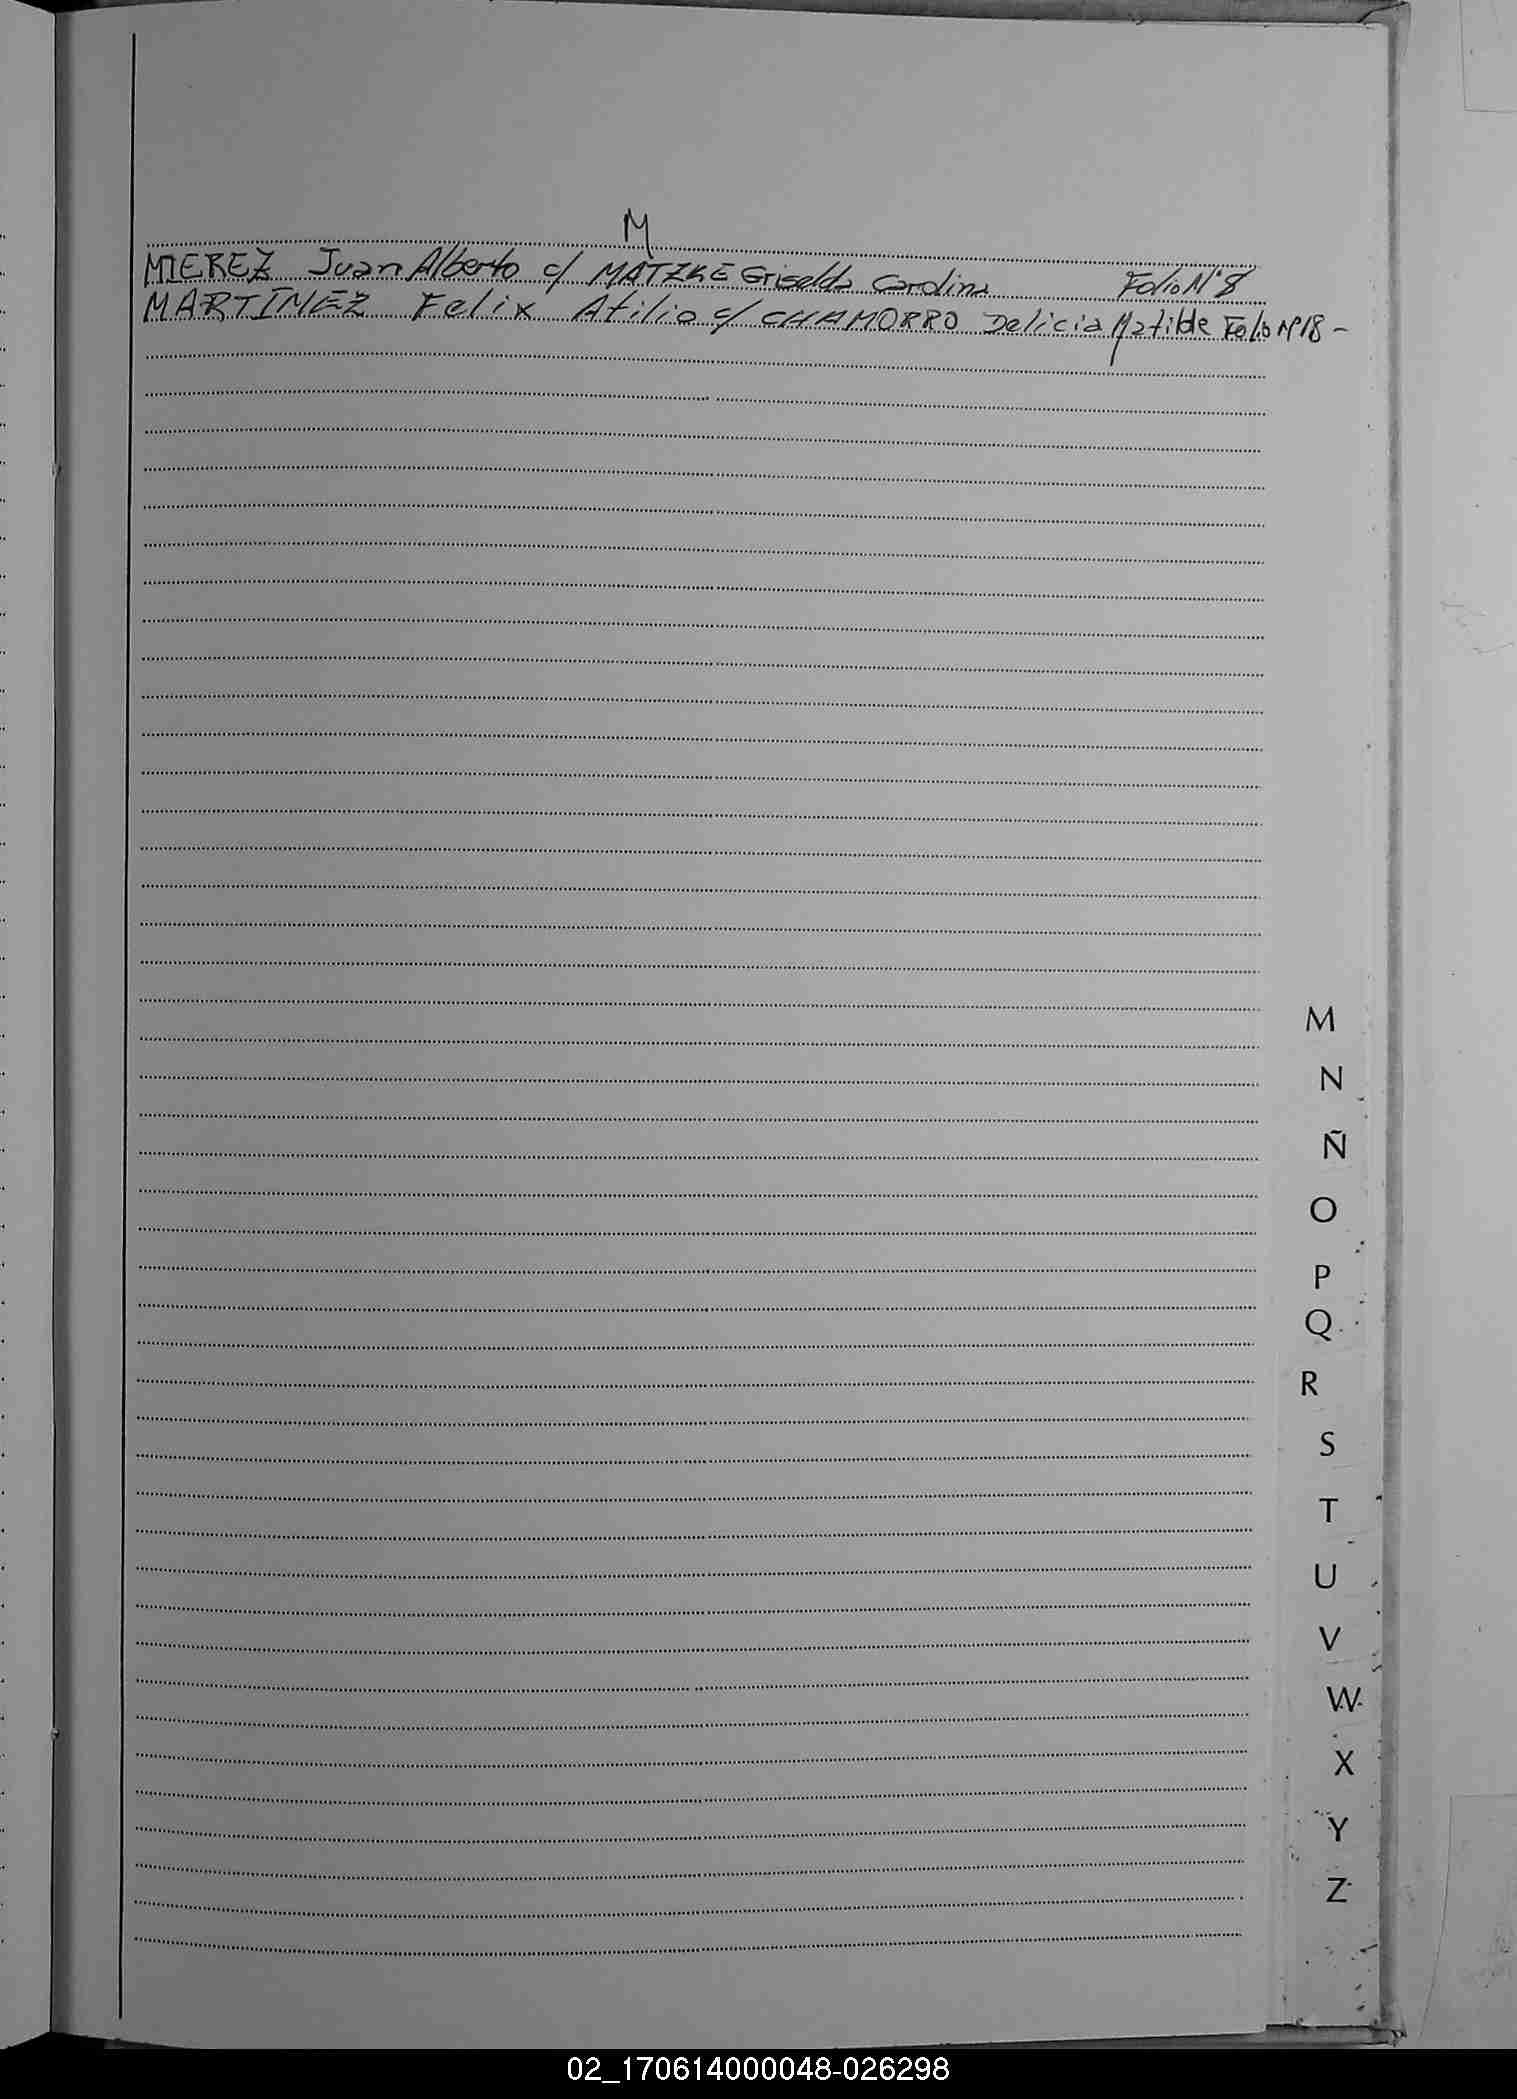 M
MIEREZ Juan Alberto c/ MATZKE Griselda Carolina Folio N° 8
MARTÍNEZ Felix Atilio c/ CHAMORRO Delicia Matilde Folio Nº 18 -
M
N
Ñ
O
P
Q
R
S
T
U
V
W
X
Y
Z
02_170614000048-026298